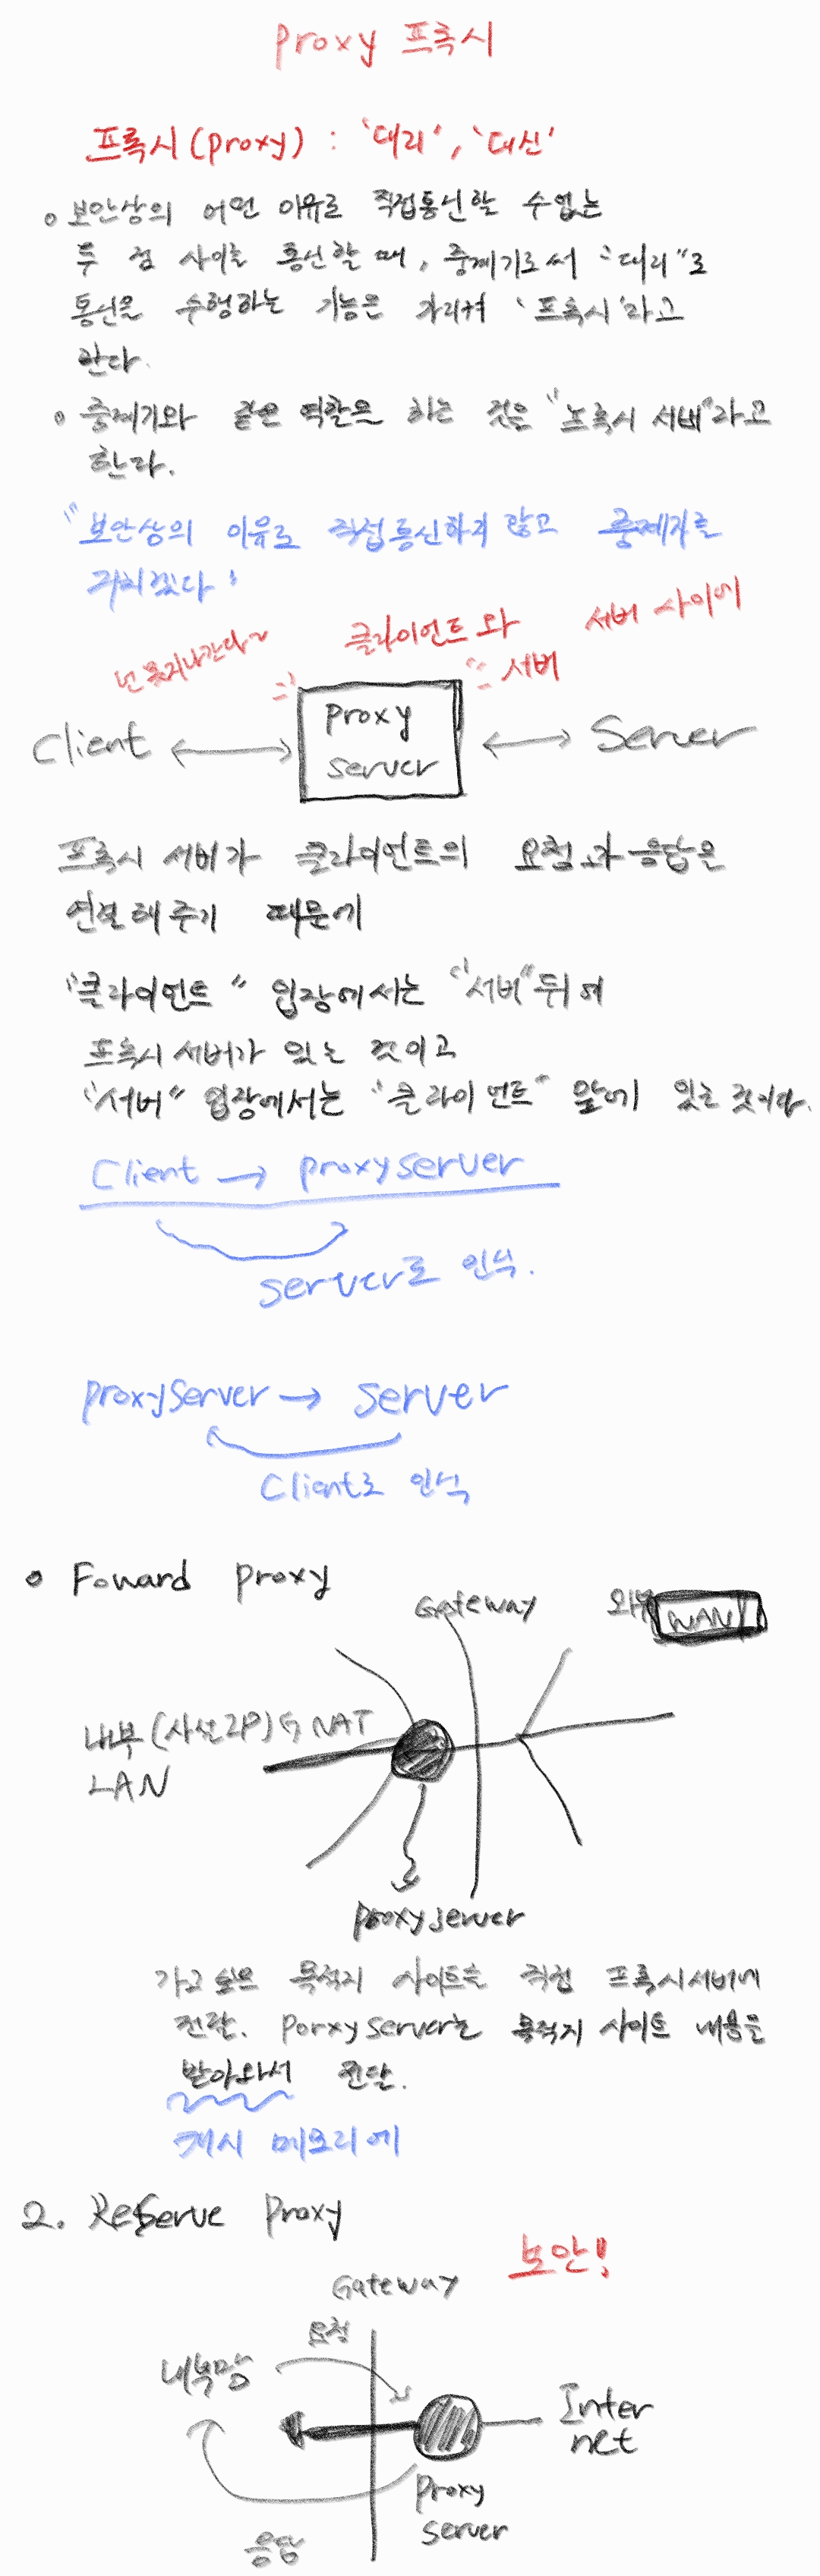 Proxy 프록시
프록시(proxy) : '대리', '대신'
보안상의 어떤 이유로 직접통신할 수없는
두 점 사이를 통신할 때, 중계기로써 "대리"로
통신을 수행하는 기능은 가리켜 '프록시'라고
한다.
중계기와 같은 역할을 하는 것은 "프록시 서버"라고
한다.
"보안상의 이유로 직접통신하지 않고 중계자를
거치겠다"
클라이언트와 서버 사이에
넌 못지나간다~
서버
Client
Proxy
server
Server
프록시 서버가 클라이언트의 요청과 응답은
연결해주기 때문에
"클라이언트" 입장에서는 "서버"뒤에
프록시 서버가 있는 것이고
"서버" 입장에서는 "클라이언트" 앞에 있는 것이다.
Client → proxyserver
server로 인식.
proxyserver → server
Client로 인식
Foward proxy
Gateway
외부 WAN
내부 (사설IP) NAT
LAN
proxyserver
가고 싶은 목적지 사이트를 직접 프록시서버에
전달. Porxyserver는 목적지 사이트 내용을
받아와서 전달.
캐시 메모리에
2. Reserve Proxy
보안!
Gateway
요청
내부망
Inter
net
Proxy
server
응답